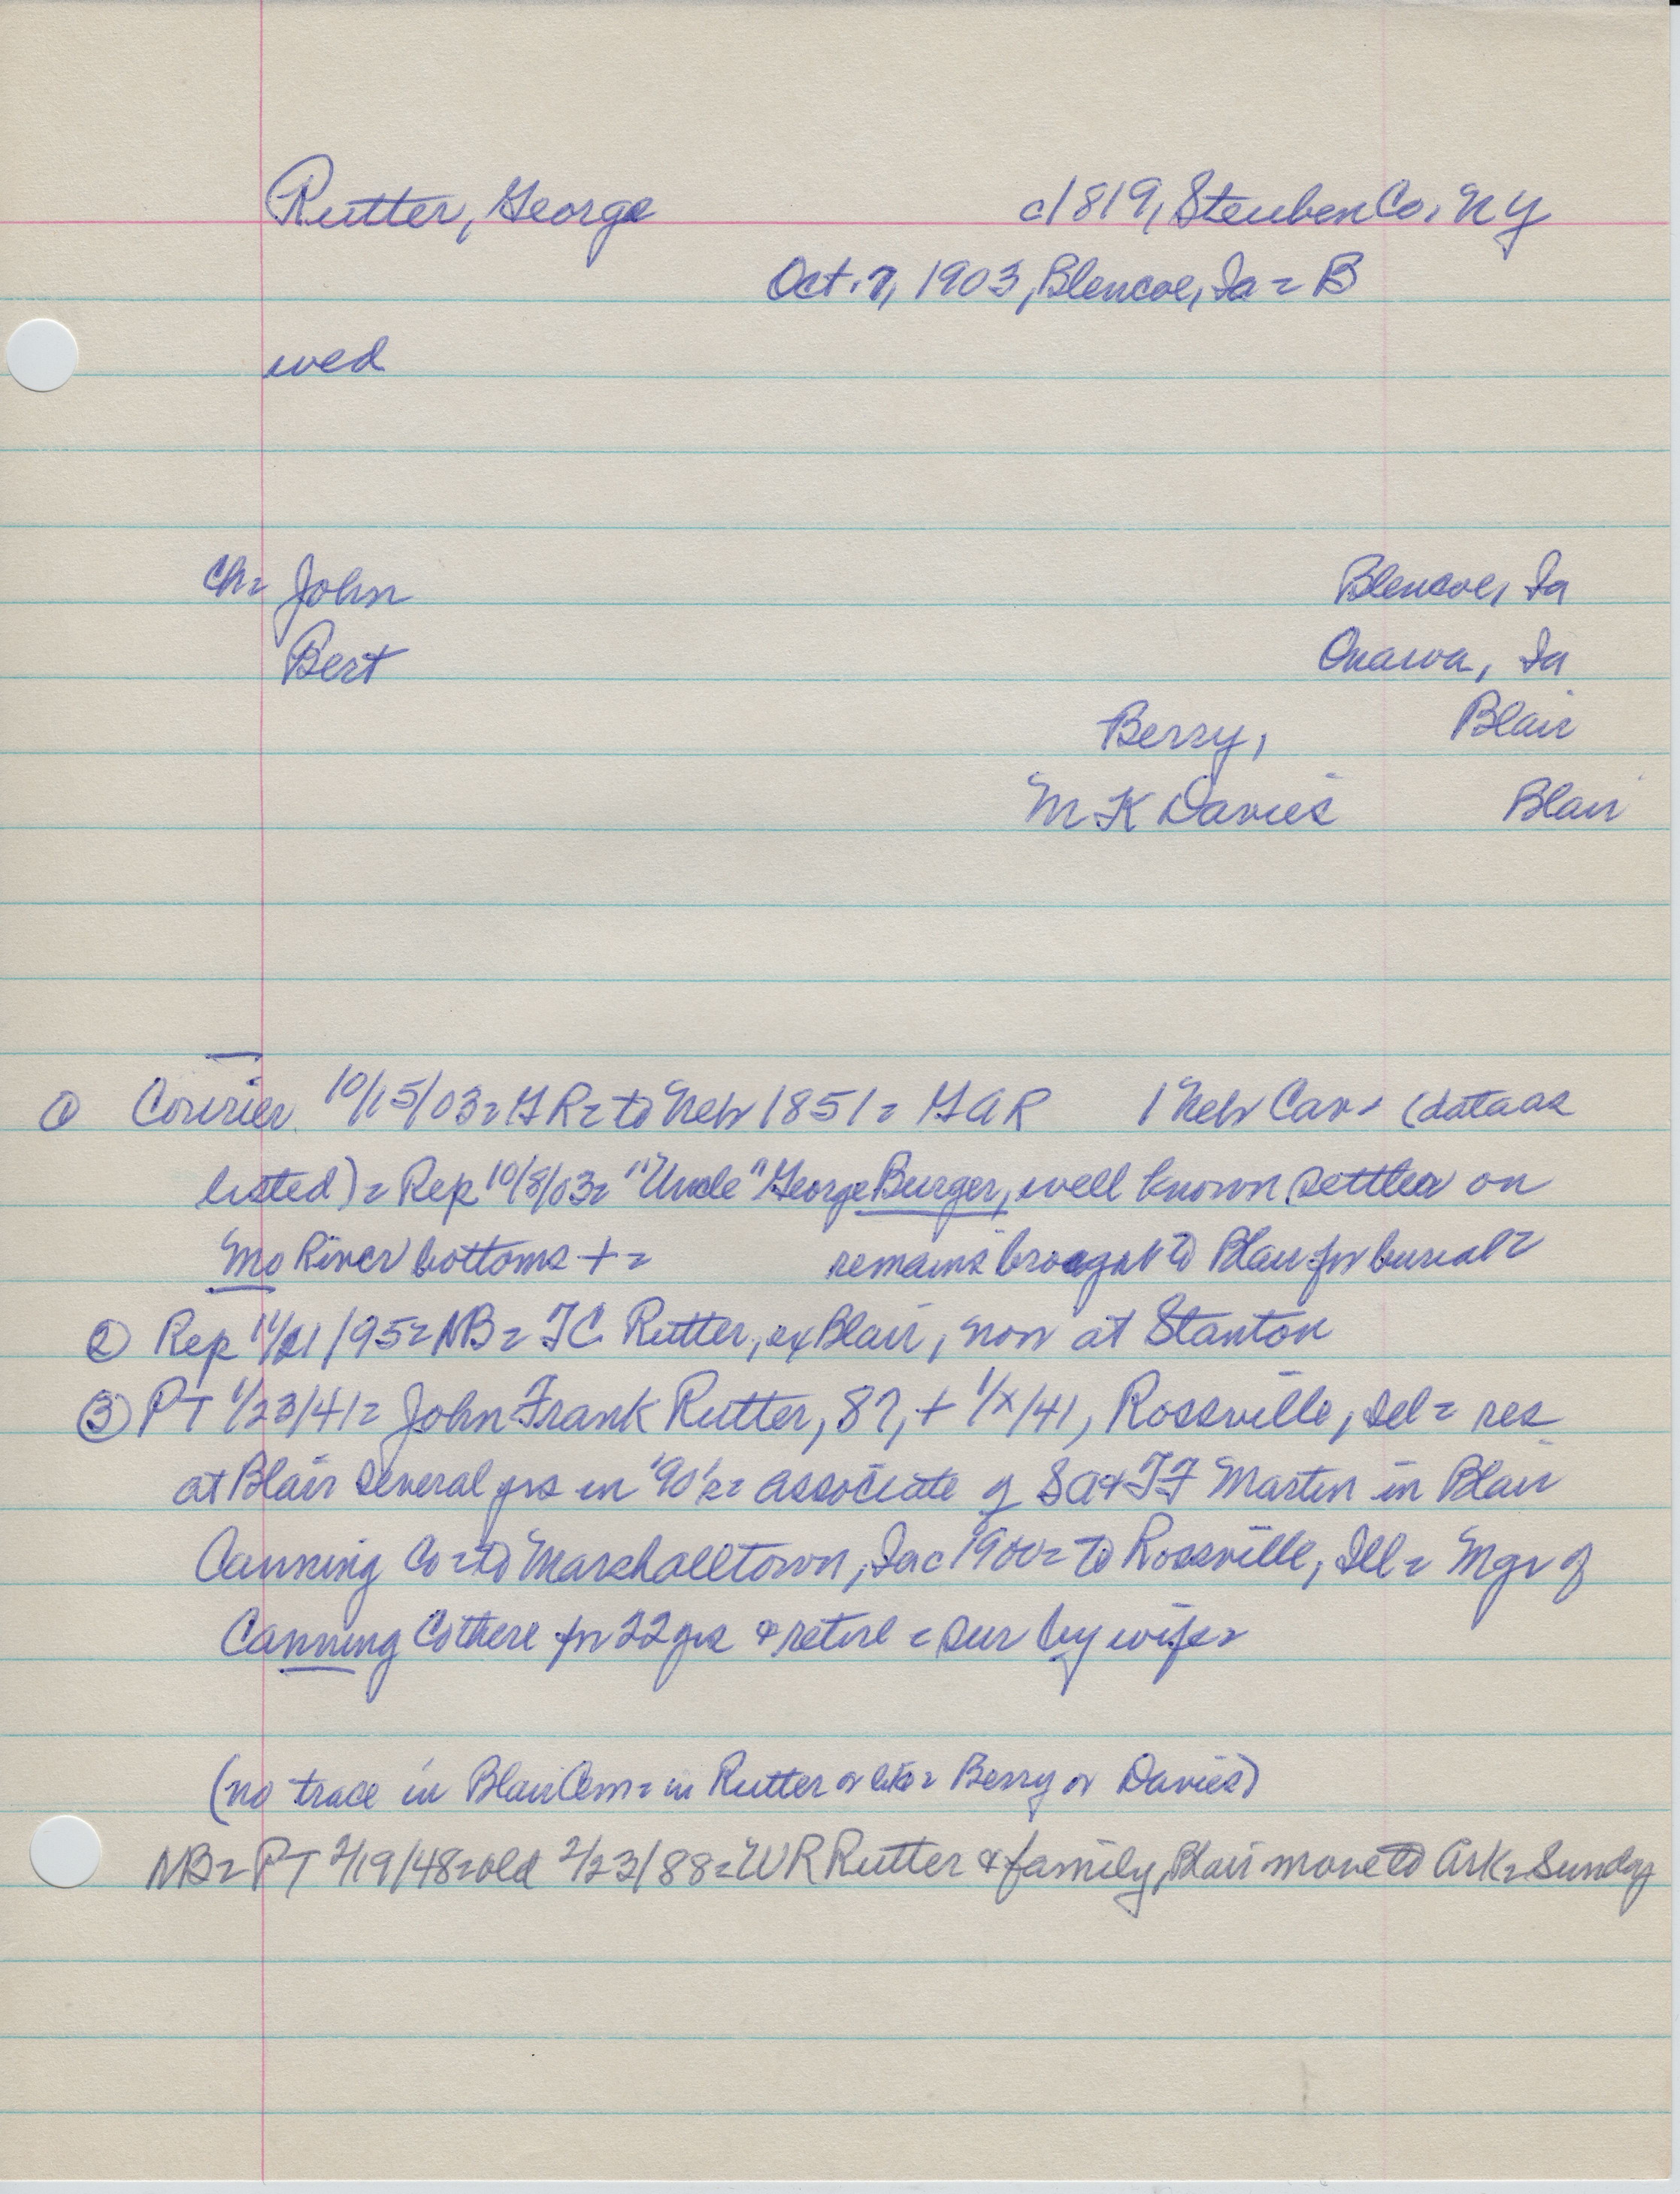 Rutter, George c1819, Steuben Co, NY
Oct. 7, 1903, Blencoe, Ia = B
wed
Ch = John Blencoe, Ia
Bert Onawa, Ia
Berry, Blair
M K Davies Blair
① Courier 10/15/03 = G R = to Neb 1851 = GAR 1 Neb Cav = (data as
listed) = Rep 10/8/03 = "Uncle" George Burger, well known settler on
Mo River bottoms + = remains brought to Blair for burial =
② Rep 11/21/95 = NB = T C Rutter, ex Blair, now at Stanton
③ PT 1/23/41 = John Frank Rutter, 87, + 1/x/41, Rossville, Ill = res
at Blair several yrs in '90's = associate of S A & T F Martin in Blair
Canning Co = to Marshalltown, Ia c 1900 = to Rossville, Ill = Mgr of
Canning Co there for 22 yrs & retire = sur by wife =
(no trace in Blair Cem = in Rutter or Berry or Davies)
NB = PT 2/19/48 = old 2/23/88 = W R Rutter & family, Blair move to Ark = Sunday